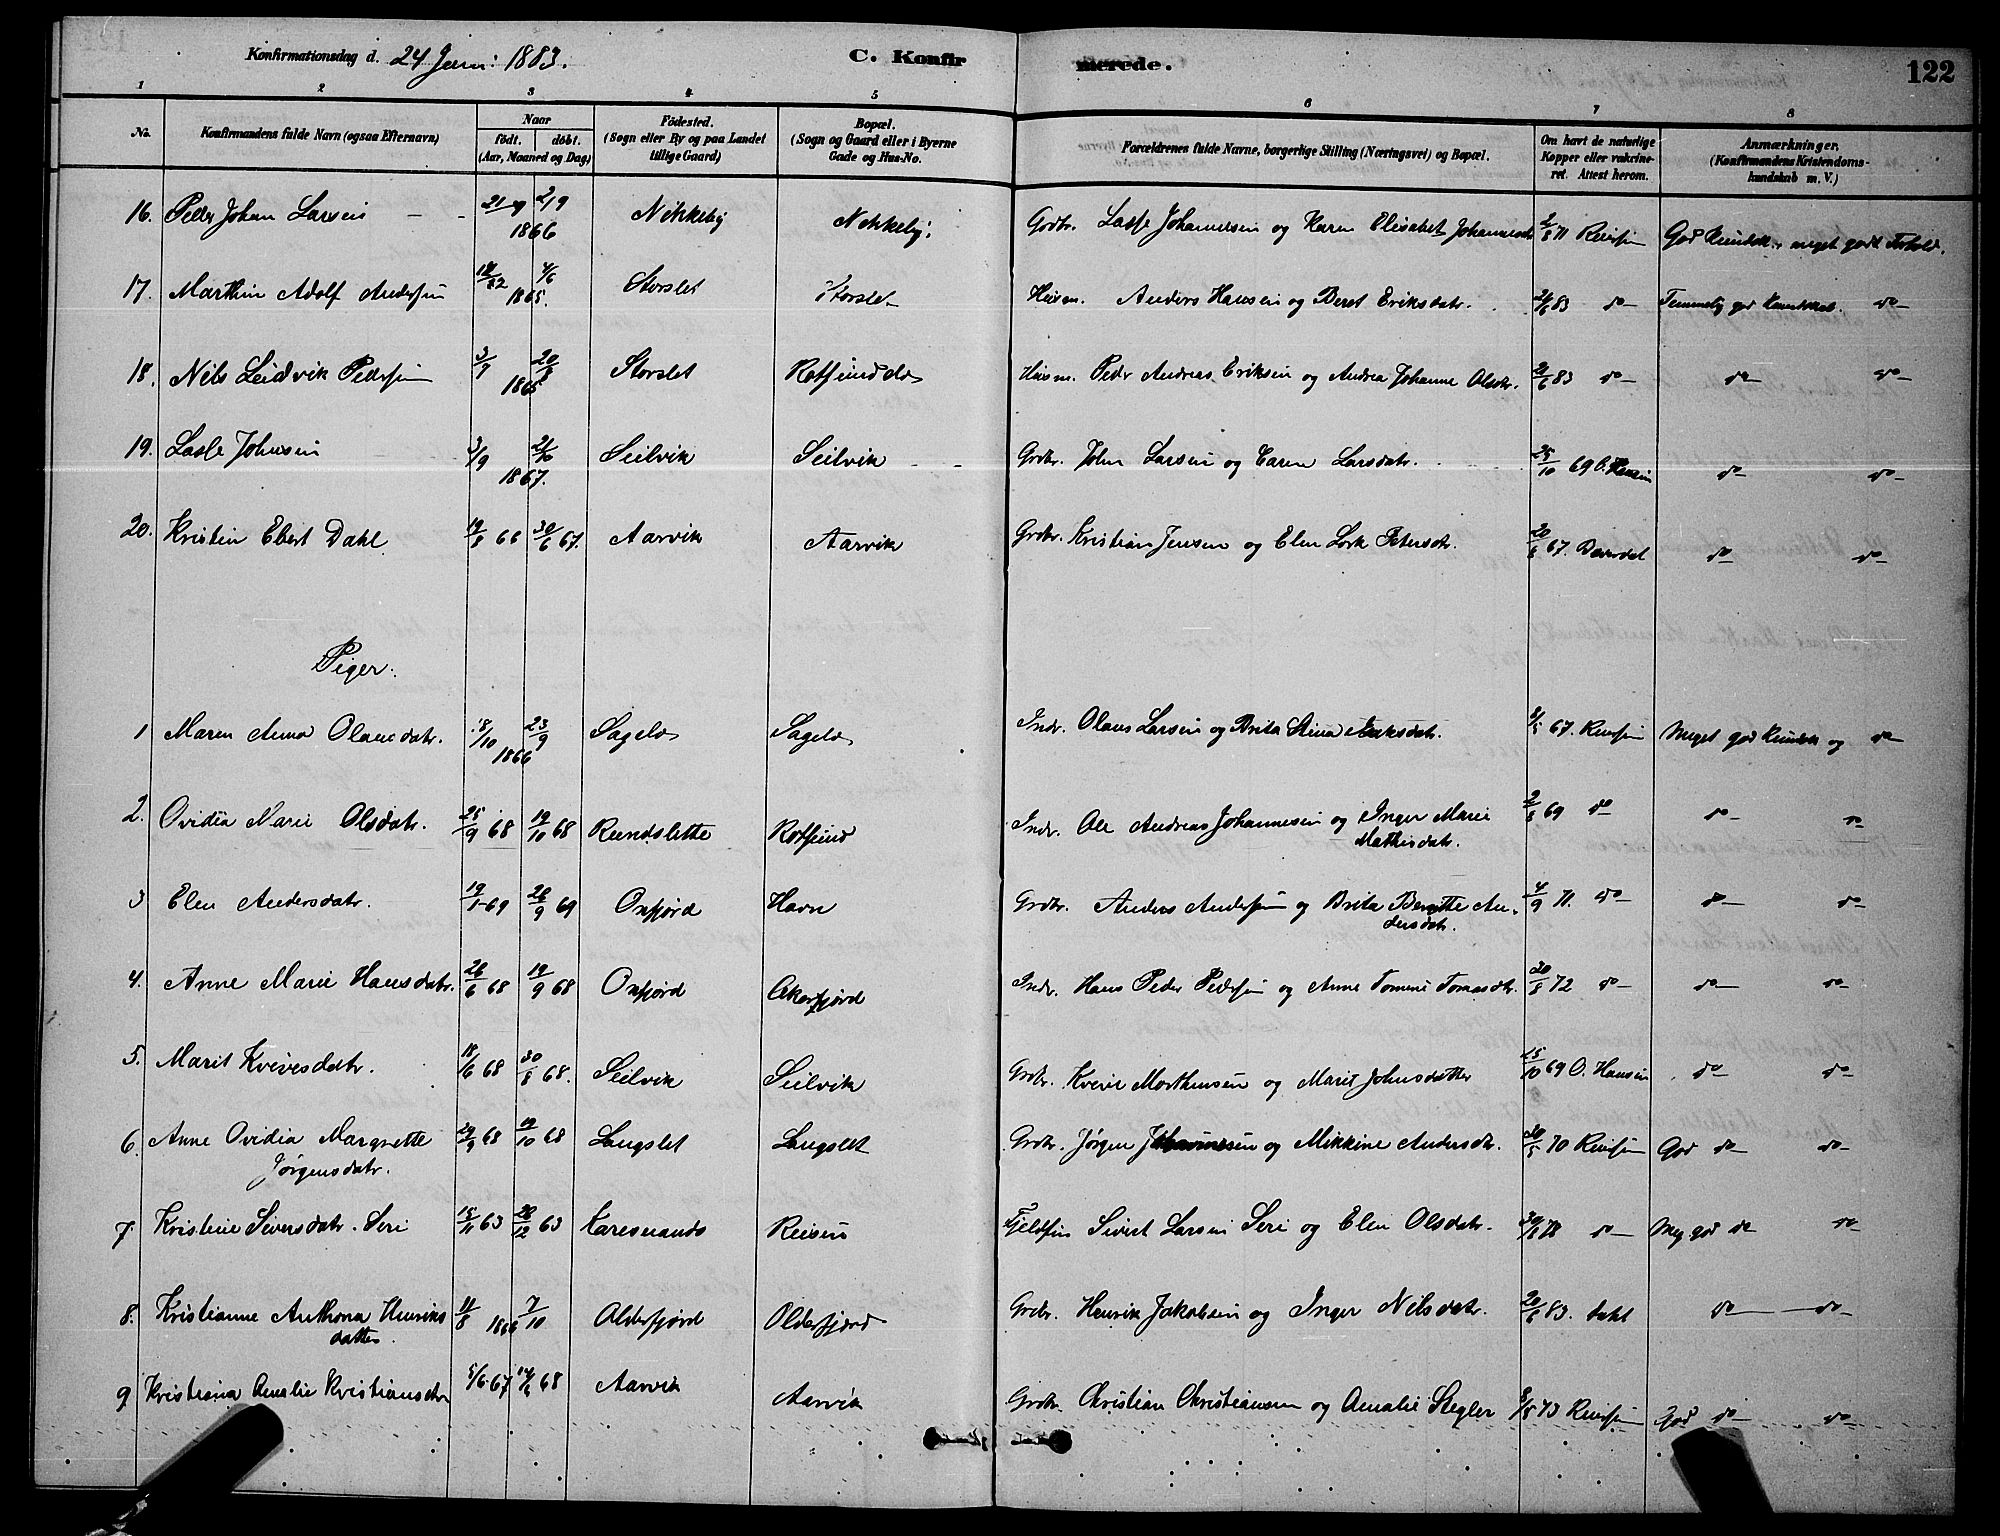 Konfirmationsdag d. 24 Juni 1883. C. Konfirmerede. 122
1 2 3 4 5 6 7 8
No. Konfirmandens fulde Navn (ogsaa Efternavn) Naar födt. döbt. (Aar, Maaned og Dag) Födested. (Sogn eller By og paa Landet tillige Gaard) Bopæl. (Sogn og Gaard eller i Byerne Gade og Hus-No. Forældrenes fulde Navne, borgerlige Stilling (Næringsvei) og Bopæl. Om havt de naturlige Kopper eller vakcineret. Attest herom. Anmærkninger. (Konfirmandens Kristendomskundskab m. V.)
16. Peder Johan Larsen 1866 Nikkeby Nikkeby. Grdbr. Lasse Johannesen og Karen Elisabet Johannesdtr 2/8 71 God Kundsk. meget godt Forhold.
17. Marthin Adolf Andersen 4/6 1865. Storslet Storslet Husm. Anders Hansen og Beret Eriksdatr. 24/6 83 do Temmelig god Kundskab. do
18. Nils Leidvik Pedersen 3/7 20/8 1865 Storslet Rotsundelv Husm. Pedr Andreas Eriksen og Andrea Johanne Olsdtr. 21/6 83 do do do
19. Lasse Johnsen 3/9 21/10 1867. Seilvik Seilvik Grdbr. John Larsen og Caren Larsdatr. 25/10 69 O. Hansen do do
20. Kristin Ebert Dahl 19/8 66 30/6 67. Aarvik Aarvik Grdbr. Kristian Jensen og Elen Lork Petersdtr. 67. do do
Piger.
1 Maren Anna Olausdatr. 18/10 23/9 1866 Sagelv Sagelv Indr. Olaus Larsen og Brita Stina Isaksdatr. 67. Meget god Kundsk og do
2. Ovidia Marie Olsdatr. 25/9 68 19/10 68 Rundslette Rotsund Indr. Ole Andreas Johannesen og Inger Marie 2/8 69 do do do
Mathisdatr.
3 Elen Andersdatr. 69 26/9 69 Oxfjord Havn Grdbr. Anders Andersen og Brita Beritte An- 4/9 71. do do do
dersdatr.
4. Anne Marie Hansdatr. 26/6 68 19/9 68 Oxfjord Akerfjord Indr. Hans Peder Pedersen og Anne Tomine Tomasdtr. 20/8 72 do do do
5. Marit Kvivesdatr. 18/6 68 30/8 68. Seilvik Seilvik Grdbr. Kvive Morthensen og Marit Johnsdatter 25/10 69 O. Hansen do do
6. Anne Ovidia Margrette 29/9 68 19/10 68 Langslet Langslet Grdbr. Jørgen Johannesen og Mikkine Andersdtr. 70 God do do
Jørgensdatr.
7. Kristine Siversdatr. Seri 15/11 63 28/12 63 Karesuando Reisen Fjeldfin Sivert Larsen Seri og Elen Olsdatr. 78 do Meg. god do do
8. Kristianne Anthona Henriks 11/8 1866 7/10 Olderfjord Olderfjord Grdbr. Henrik Jakobsen og Inger Nilsdatr. 20/6 83. Dahl do do
datter
9 Kristiana Amalie Kristiansdtr 5/6 67 14/6 68 Aarvik Aarvik Grdbr. Christian Christiansen og Amalie Stegler 73 God do do